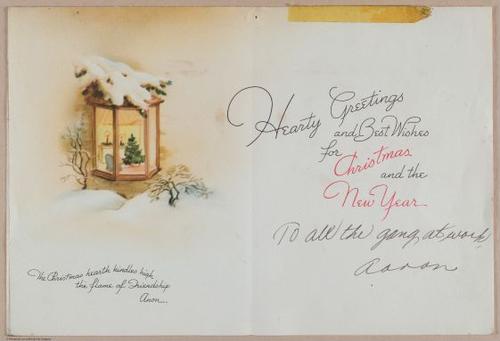 The Christmas hearth kindles high
the flame of Friendship
Anon...
Hearty Greetings
and Best Wishes
for
Christmas
and the
New Year
To all the gang at work